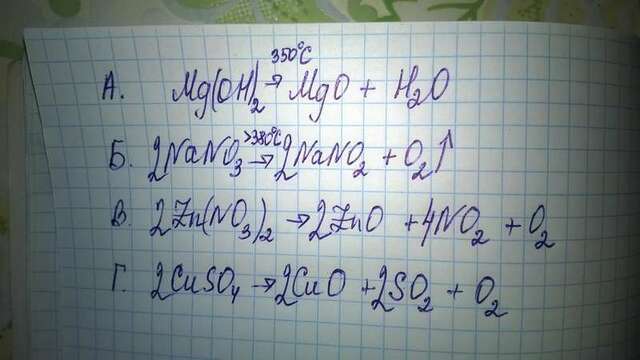 А. Mg(OH)₂ 350°C → MgO + H₂O
Б. 2NaNO₃ >380°C → 2NaNO₂ + O₂↑
В. 2Zn(NO₃)₂ → 2ZnO + 4NO₂ + O₂
Г. 2CuSO₄ → 2CuO + 2SO₂ + O₂